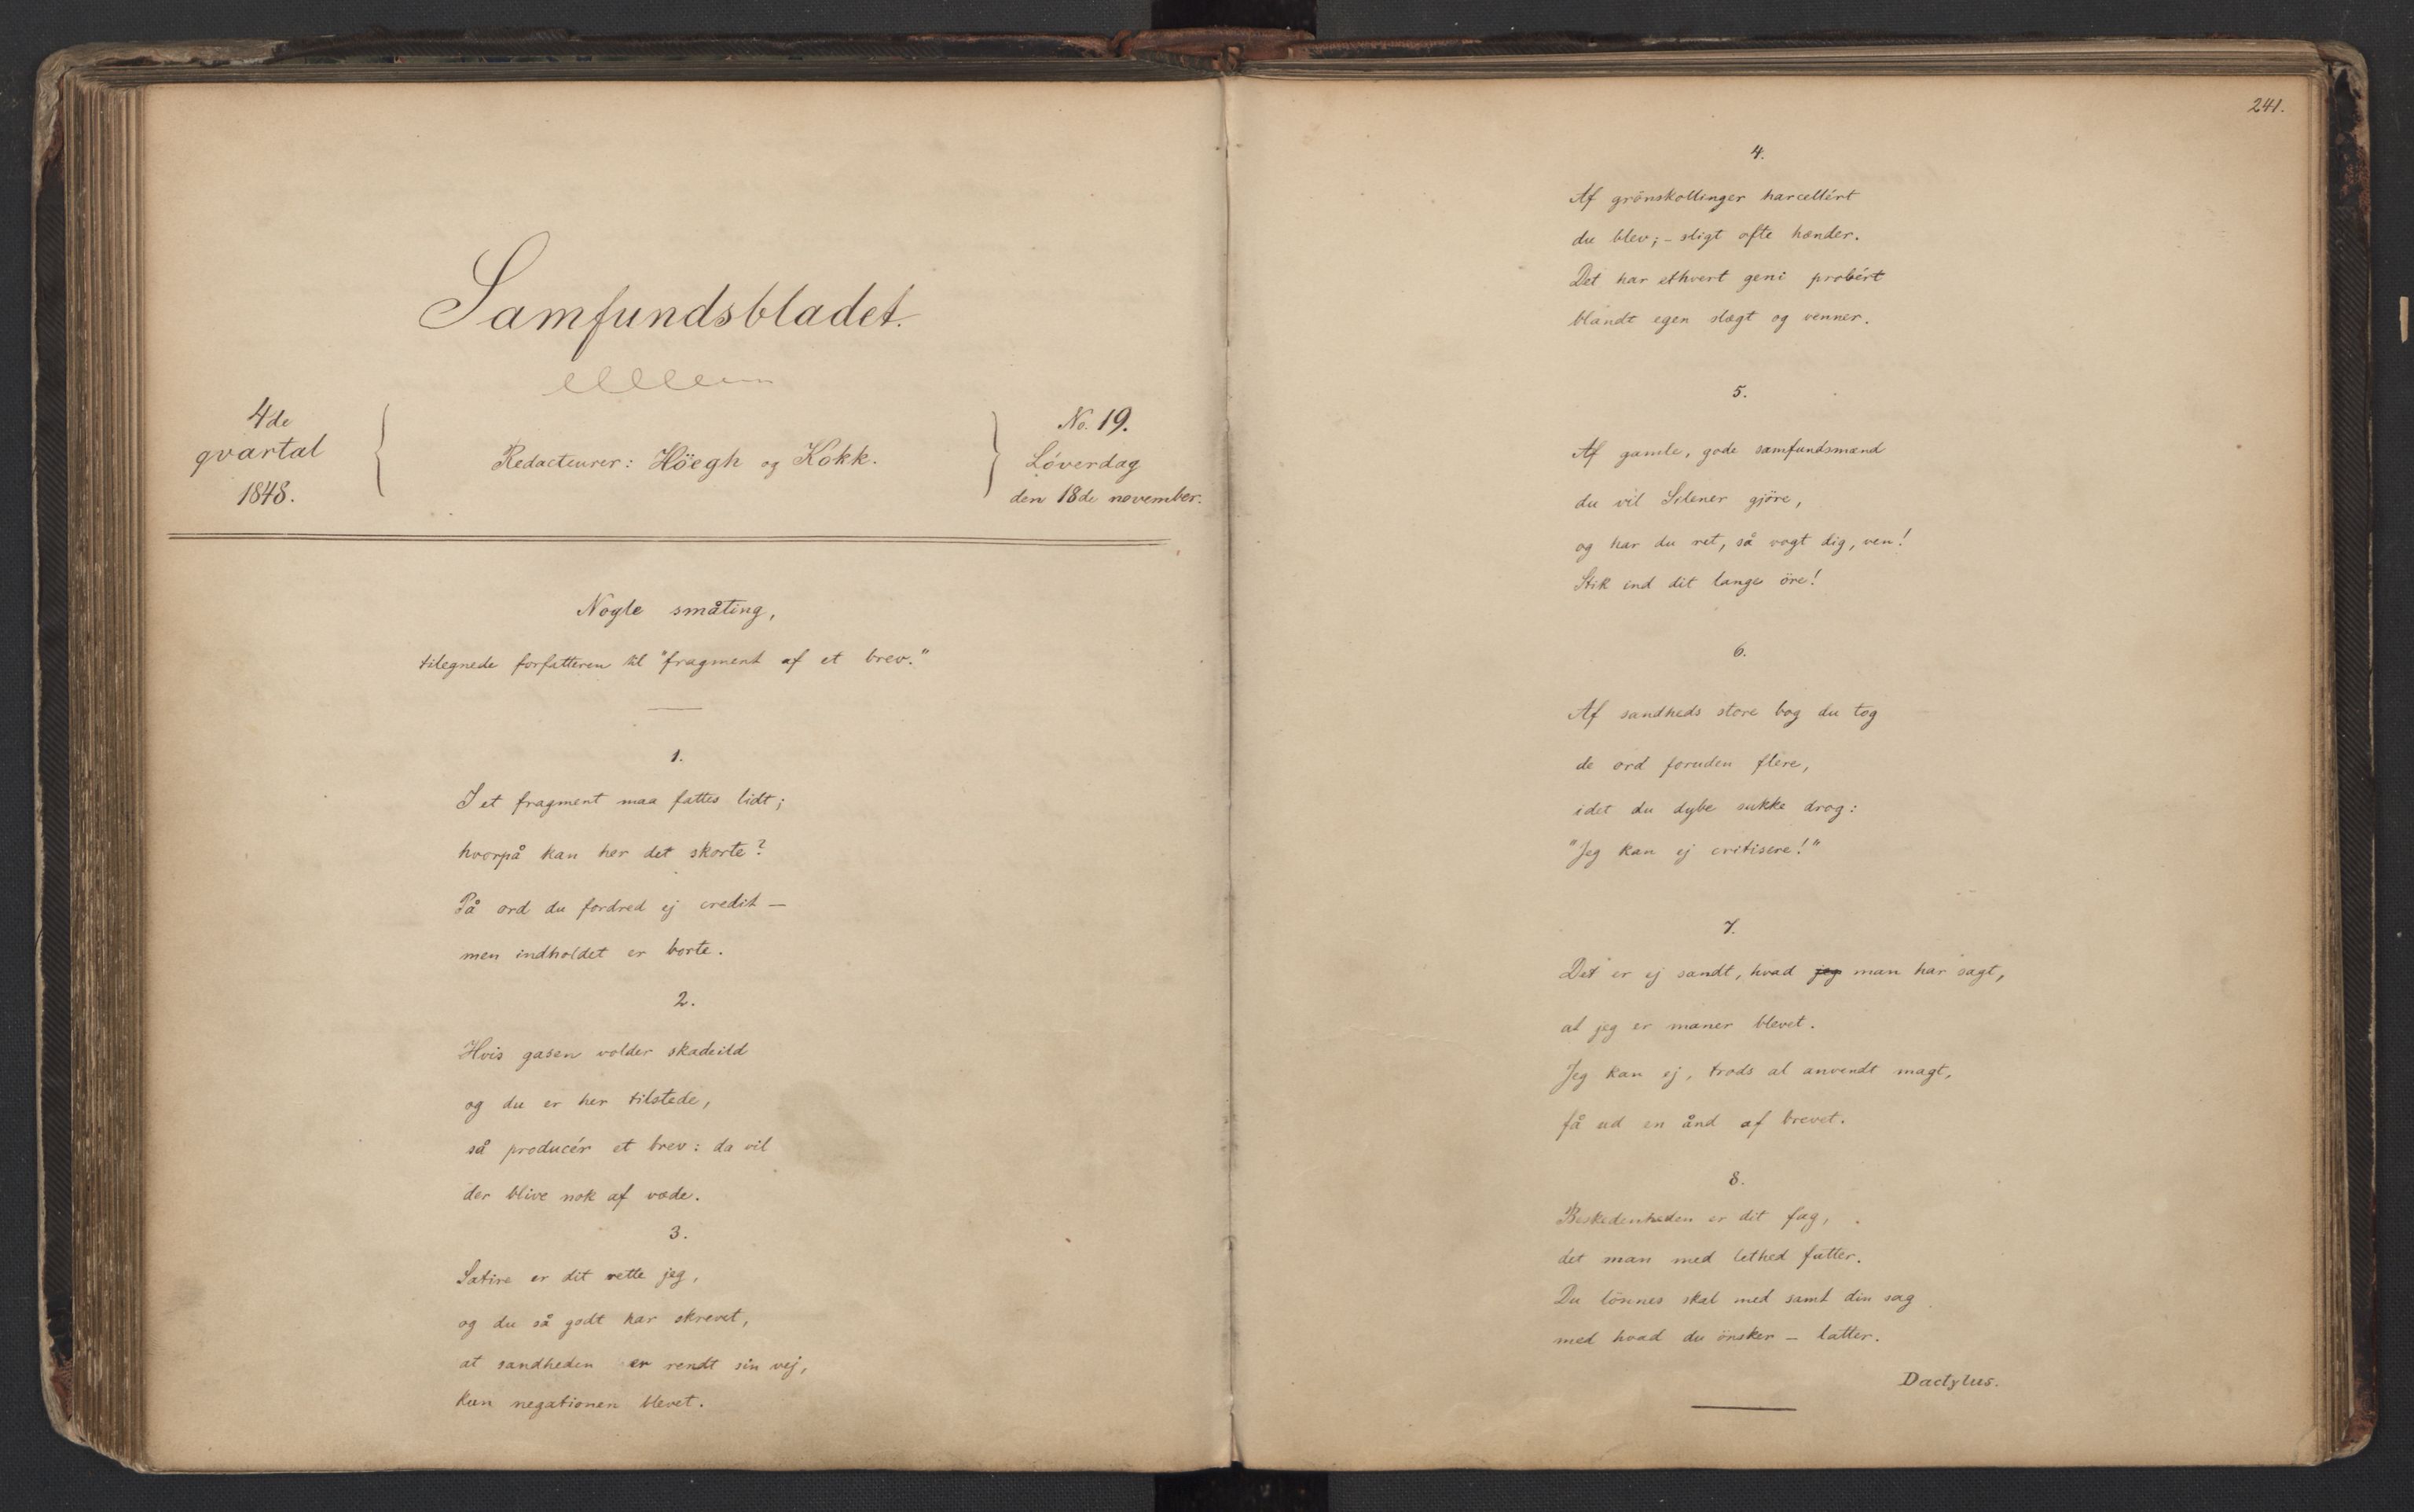 Samfundsbladet.
4de
qvartal
1848.
Redacteurer: Höegh og Kokk.
No. 19.
Löverdag
den 18de november.
Nogle småting,
tilegnede forfatteren til "fragment af et brev."
1.
I et fragment maa fattes lidt;
hvorpå kan her det skorte?
På ord du fordred ej credit —
men indholdet er borte.
2.
Hvis gasen volder skadeild
og du er her tilstede,
så producér et brev: da vil
der blive nok af væde.
3.
Satire er dit rette jeg,
og du så godt har skrevet,
at sandheden er rendt sin vej,
kun negationen blevet.
241.
4.
Af grönskollinger harcellért
du blev; - sligt ofte hænder.
Det har ethvert geni probért
blandt egen slægt og venner.
5.
Af gamle, gode samfundsmænd
du vil Silener gjöre,
og har du ret, så vogt dig, ven!
Stik ind dit lange öre!
6.
Af sandheds store bog du tog
de ord foruden flere,
idet du dybe sukke drog:
"Jeg kan ej critisere!"
7.
Det er ej sandt, hvad jeg man har sagt,
at jeg er maner blevet.
Jeg kan ej, trods al anvendt magt,
få ud en ånd af brevet.
8.
Beskedenheden er dit fag,
det man med lethed fatter.
Du lönnes skal med samt din sag
med hvad du önsker — latter.
Dactylus.